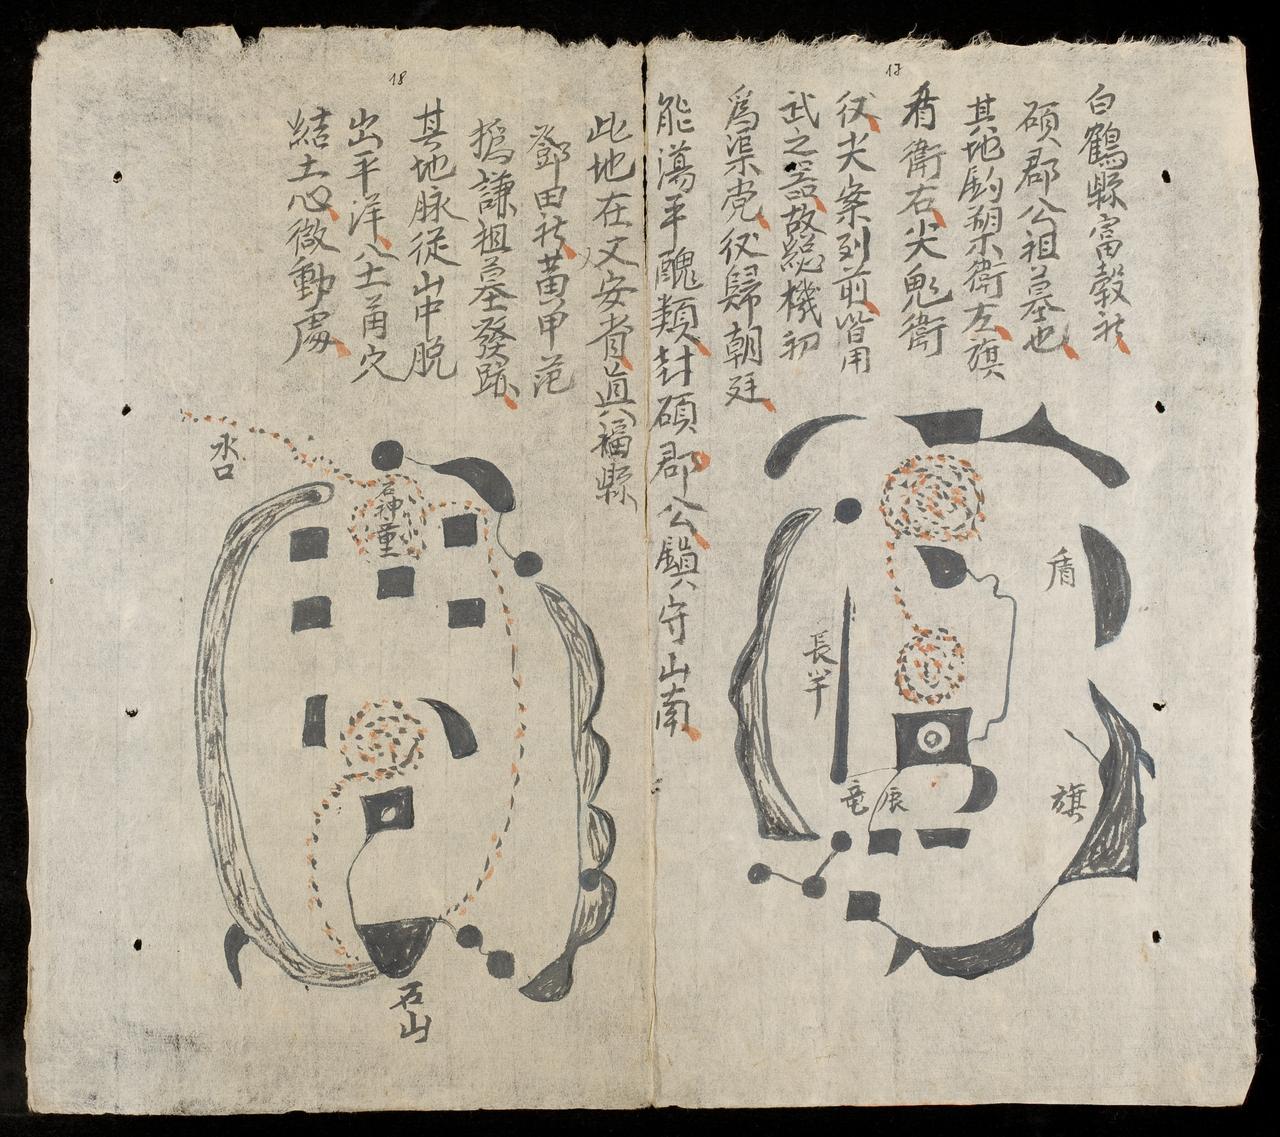 17
白鶴縣富穀社
碩郡公祖墓也
其地勢朔樂衛左旗
盾衛右尖鬼衛
後尖案列前皆用
武之器故総機初
爲渠党後歸朝廷
能蕩平醜類封碩郡公鎮守山南
盾
長竿
竜辰
旗
18
此地在文安省真福縣
鄧田社黄甲范
撝謙祖墓發跡
其地脉從山中脱
出平洋八土角穴
結土心微動處
水口
石神童
石山